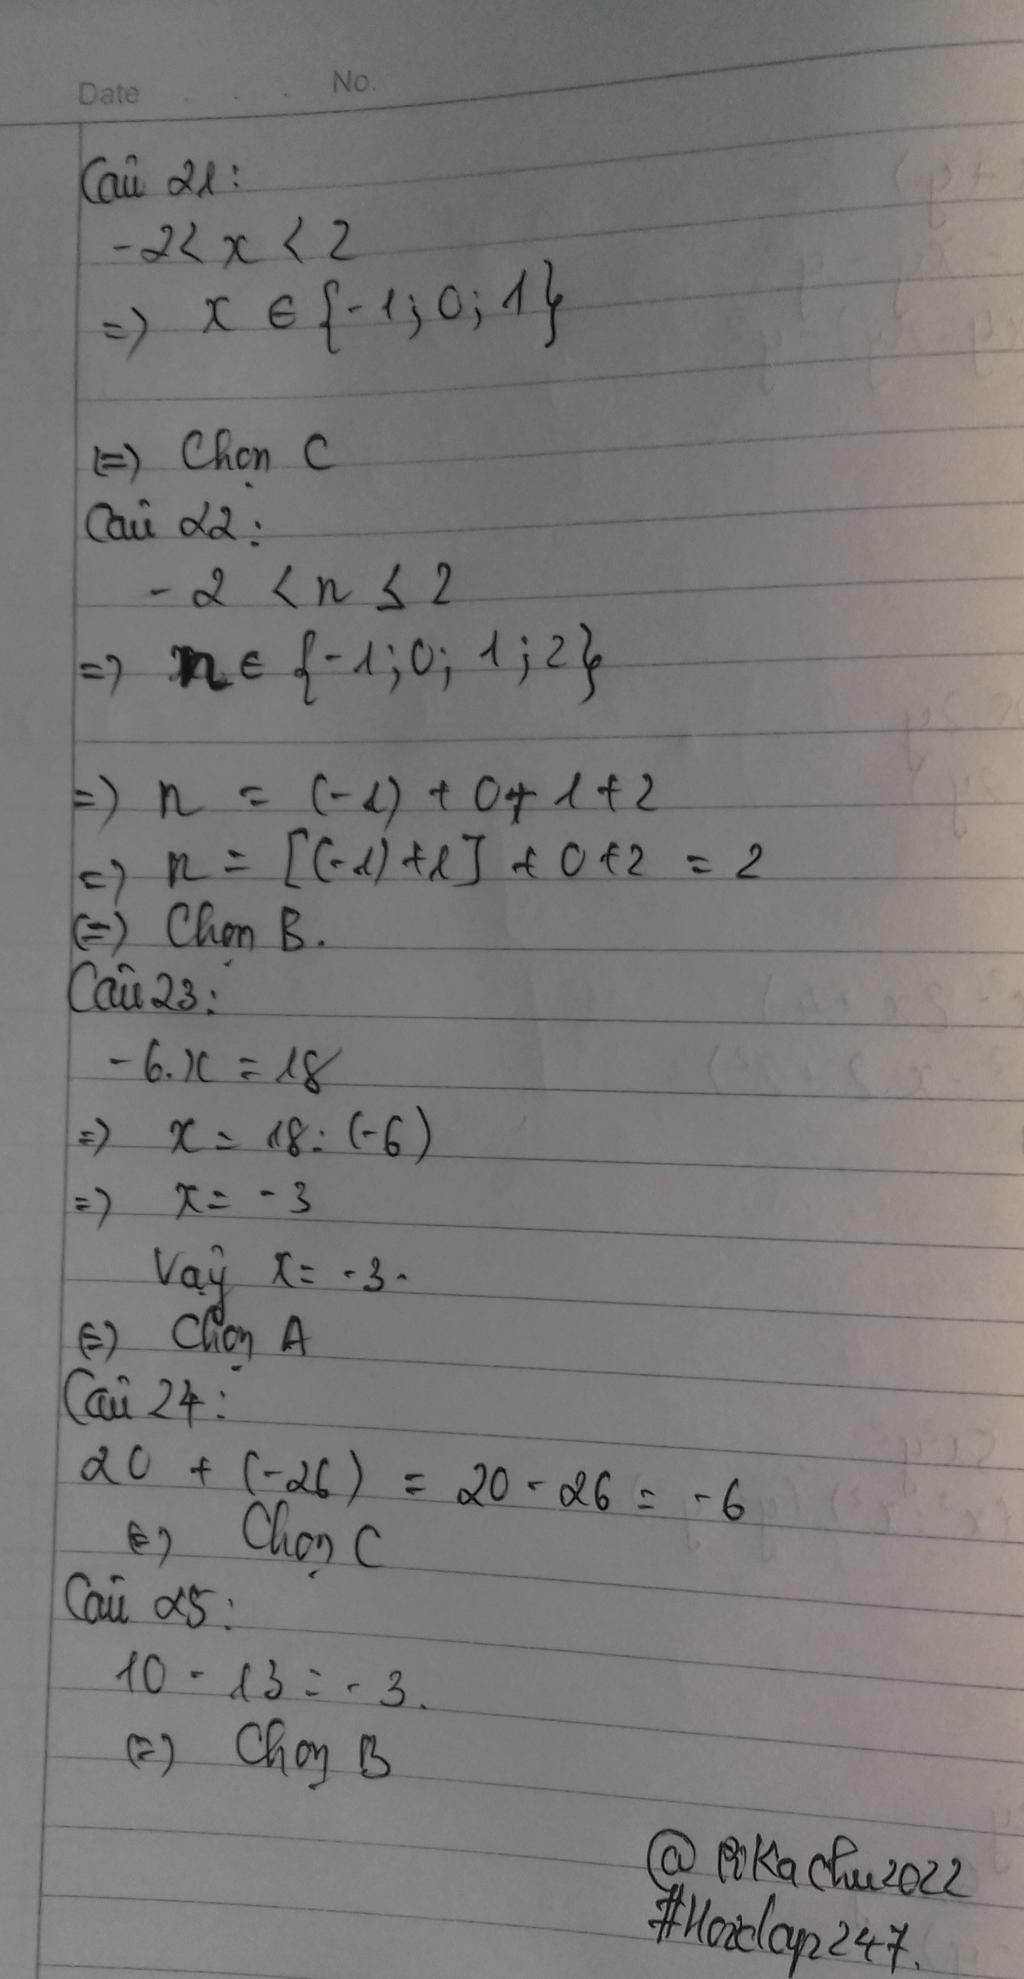 Date . . . No.
Câu 21:
-2 < x < 2
=> x ∈ {-1; 0; 1}
(=) Chọn C
Câu 22:
-2 < n ≤ 2
=> n ∈ {-1; 0; 1; 2}
=> n = (-1) + 0 + 1 + 2
=> n = [(-1) + 1] + 0 + 2 = 2
(=) Chọn B.
Câu 23:
-6.x = 18
=> x = 18 : (-6)
=> x = -3
Vậy x = -3.
(=) Chọn A
Câu 24:
20 + (-26) = 20 - 26 = -6
(=) Chọn C
Câu 25:
10 - 13 = -3.
(=) Chọn B
@PiKachu2022
#Hoidap247.